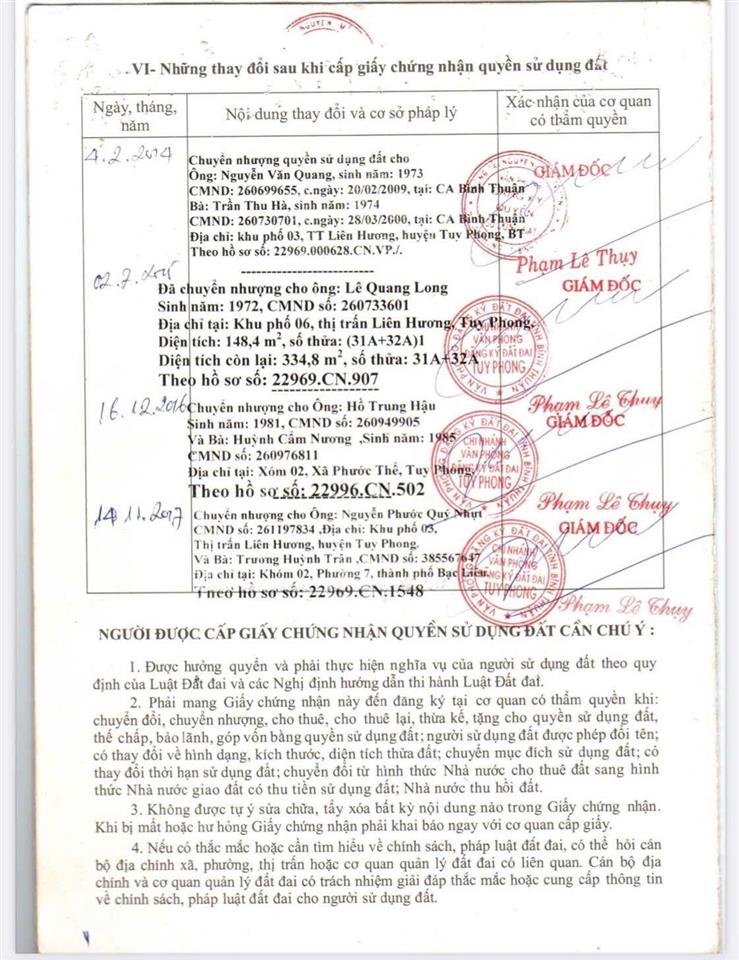 NGUYÊN MT
VI- Những thay đổi sau khi cấp giấy chứng nhận quyền sử dụng đất
Ngày, tháng, năm
Nội dung thay đổi và cơ sở pháp lý
Xác nhận của cơ quan có thẩm quyền
4.2.2014
Chuyển nhượng quyền sử dụng đất cho
Ông: Nguyễn Văn Quang, sinh năm: 1973
CMND: 260699655, c.ngày: 20/02/2009, tại: CA Bình Thuận
Bà: Trần Thu Hà, sinh năm: 1974
CMND: 260730701, c.ngày: 28/03/2600, tại: CA Bình Thuận
Địa chỉ: khu phố 03, TT Liên Hương, huyện Tuy Phong, BT
Theo hồ sơ số: 22969.000628.CN.VP./.
GIÁM ĐỐC
Phạm Lê Thụy
02.7.2015
Đã chuyển nhượng cho ông: Lê Quang Long
Sinh năm: 1972, CMND số: 260733601
Địa chỉ tại: Khu phố 06, thị trấn Liên Hương, Tuy Phong.
Diện tích: 148,4 m², số thửa: (31A+32A)1
Diện tích còn lại: 334,8 m², số thửa: 31A+32A
Theo hồ sơ số: 22969.CN.907
GIÁM ĐỐC
VĂN PHÒNG ĐĂNG KÝ ĐẤT ĐAI TỈNH BÌNH THUẬN
CHI NHÁNH
VĂN PHÒNG
ĐĂNG KÝ ĐẤT ĐAI
TUY PHONG
Phạm Lê Thụy
16.12.2016
Chuyển nhượng cho Ông: Hồ Trung Hậu
Sinh năm: 1981, CMND số: 260949905
Và Bà: Huỳnh Cẩm Nương ,Sinh năm: 1985
CMND số: 260976811
Địa chỉ tại: Xóm 02, Xã Phước Thể, Tuy Phong,
Theo hồ sơ số: 22996.CN.502
GIÁM ĐỐC
VĂN PHÒNG ĐĂNG KÝ ĐẤT ĐAI TỈNH BÌNH THUẬN
CHI NHÁNH
VĂN PHÒNG
ĐĂNG KÝ ĐẤT ĐAI
TUY PHONG
Phạm Lê Thụy
14 11.2017
Chuyển nhượng cho Ông: Nguyễn Phước Quý Nhựt
CMND số: 261197834 ,Địa chỉ: Khu phố 03,
Thị trấn Liên Hương, huyện Tuy Phong.
Và Bà: Trương Huỳnh Trân ,CMND số: 385567647
Địa chỉ tại: Khóm 02, Phường 7, thành phố Bạc Liêu.
Theo hồ sơ số: 22969.CN.1548
GIÁM ĐỐC
VĂN PHÒNG ĐĂNG KÝ ĐẤT ĐAI TỈNH BÌNH THUẬN
CHI NHÁNH
VĂN PHÒNG
ĐĂNG KÝ ĐẤT ĐAI
TUY PHONG
Phạm Lê Thụy
NGƯỜI ĐƯỢC CẤP GIẤY CHỨNG NHẬN QUYỀN SỬ DỤNG ĐẤT CẦN CHÚ Ý :
1. Được hưởng quyền và phải thực hiện nghĩa vụ của người sử dụng đất theo quy
định của Luật Đất đai và các Nghị định hướng dẫn thi hành Luật Đất đai.
2. Phải mang Giấy chứng nhận này đến đăng ký tại cơ quan có thẩm quyền khi:
chuyển đổi, chuyển nhượng, cho thuê, cho thuê lại, thừa kế, tặng cho quyền sử dụng đất,
thế chấp, bảo lãnh, góp vốn bằng quyền sử dụng đất; người sử dụng đất được phép đổi tên;
có thay đổi về hình dạng, kích thước, diện tích thửa đất; chuyển mục đích sử dụng đất; có
thay đổi thời hạn sử dụng đất; chuyển đổi từ hình thức Nhà nước cho thuê đất sang hình
thức Nhà nước giao đất có thu tiền sử dụng đất; Nhà nước thu hồi đất.
3. Không được tự ý sửa chữa, tẩy xóa bất kỳ nội dung nào trong Giấy chứng nhận.
Khi bị mất hoặc hư hỏng Giấy chứng nhận phải khai báo ngay với cơ quan cấp giấy.
4. Nếu có thắc mắc hoặc cần tìm hiểu về chính sách, pháp luật đất đai, có thể hỏi cán
bộ địa chính xã, phường, thị trấn hoặc cơ quan quản lý đất đai có liên quan. Cán bộ địa
chính và cơ quan quản lý đất đai có trách nhiệm giải đáp thắc mắc hoặc cung cấp thông tin
về chính sách, pháp luật đất đai cho người sử dụng đất.